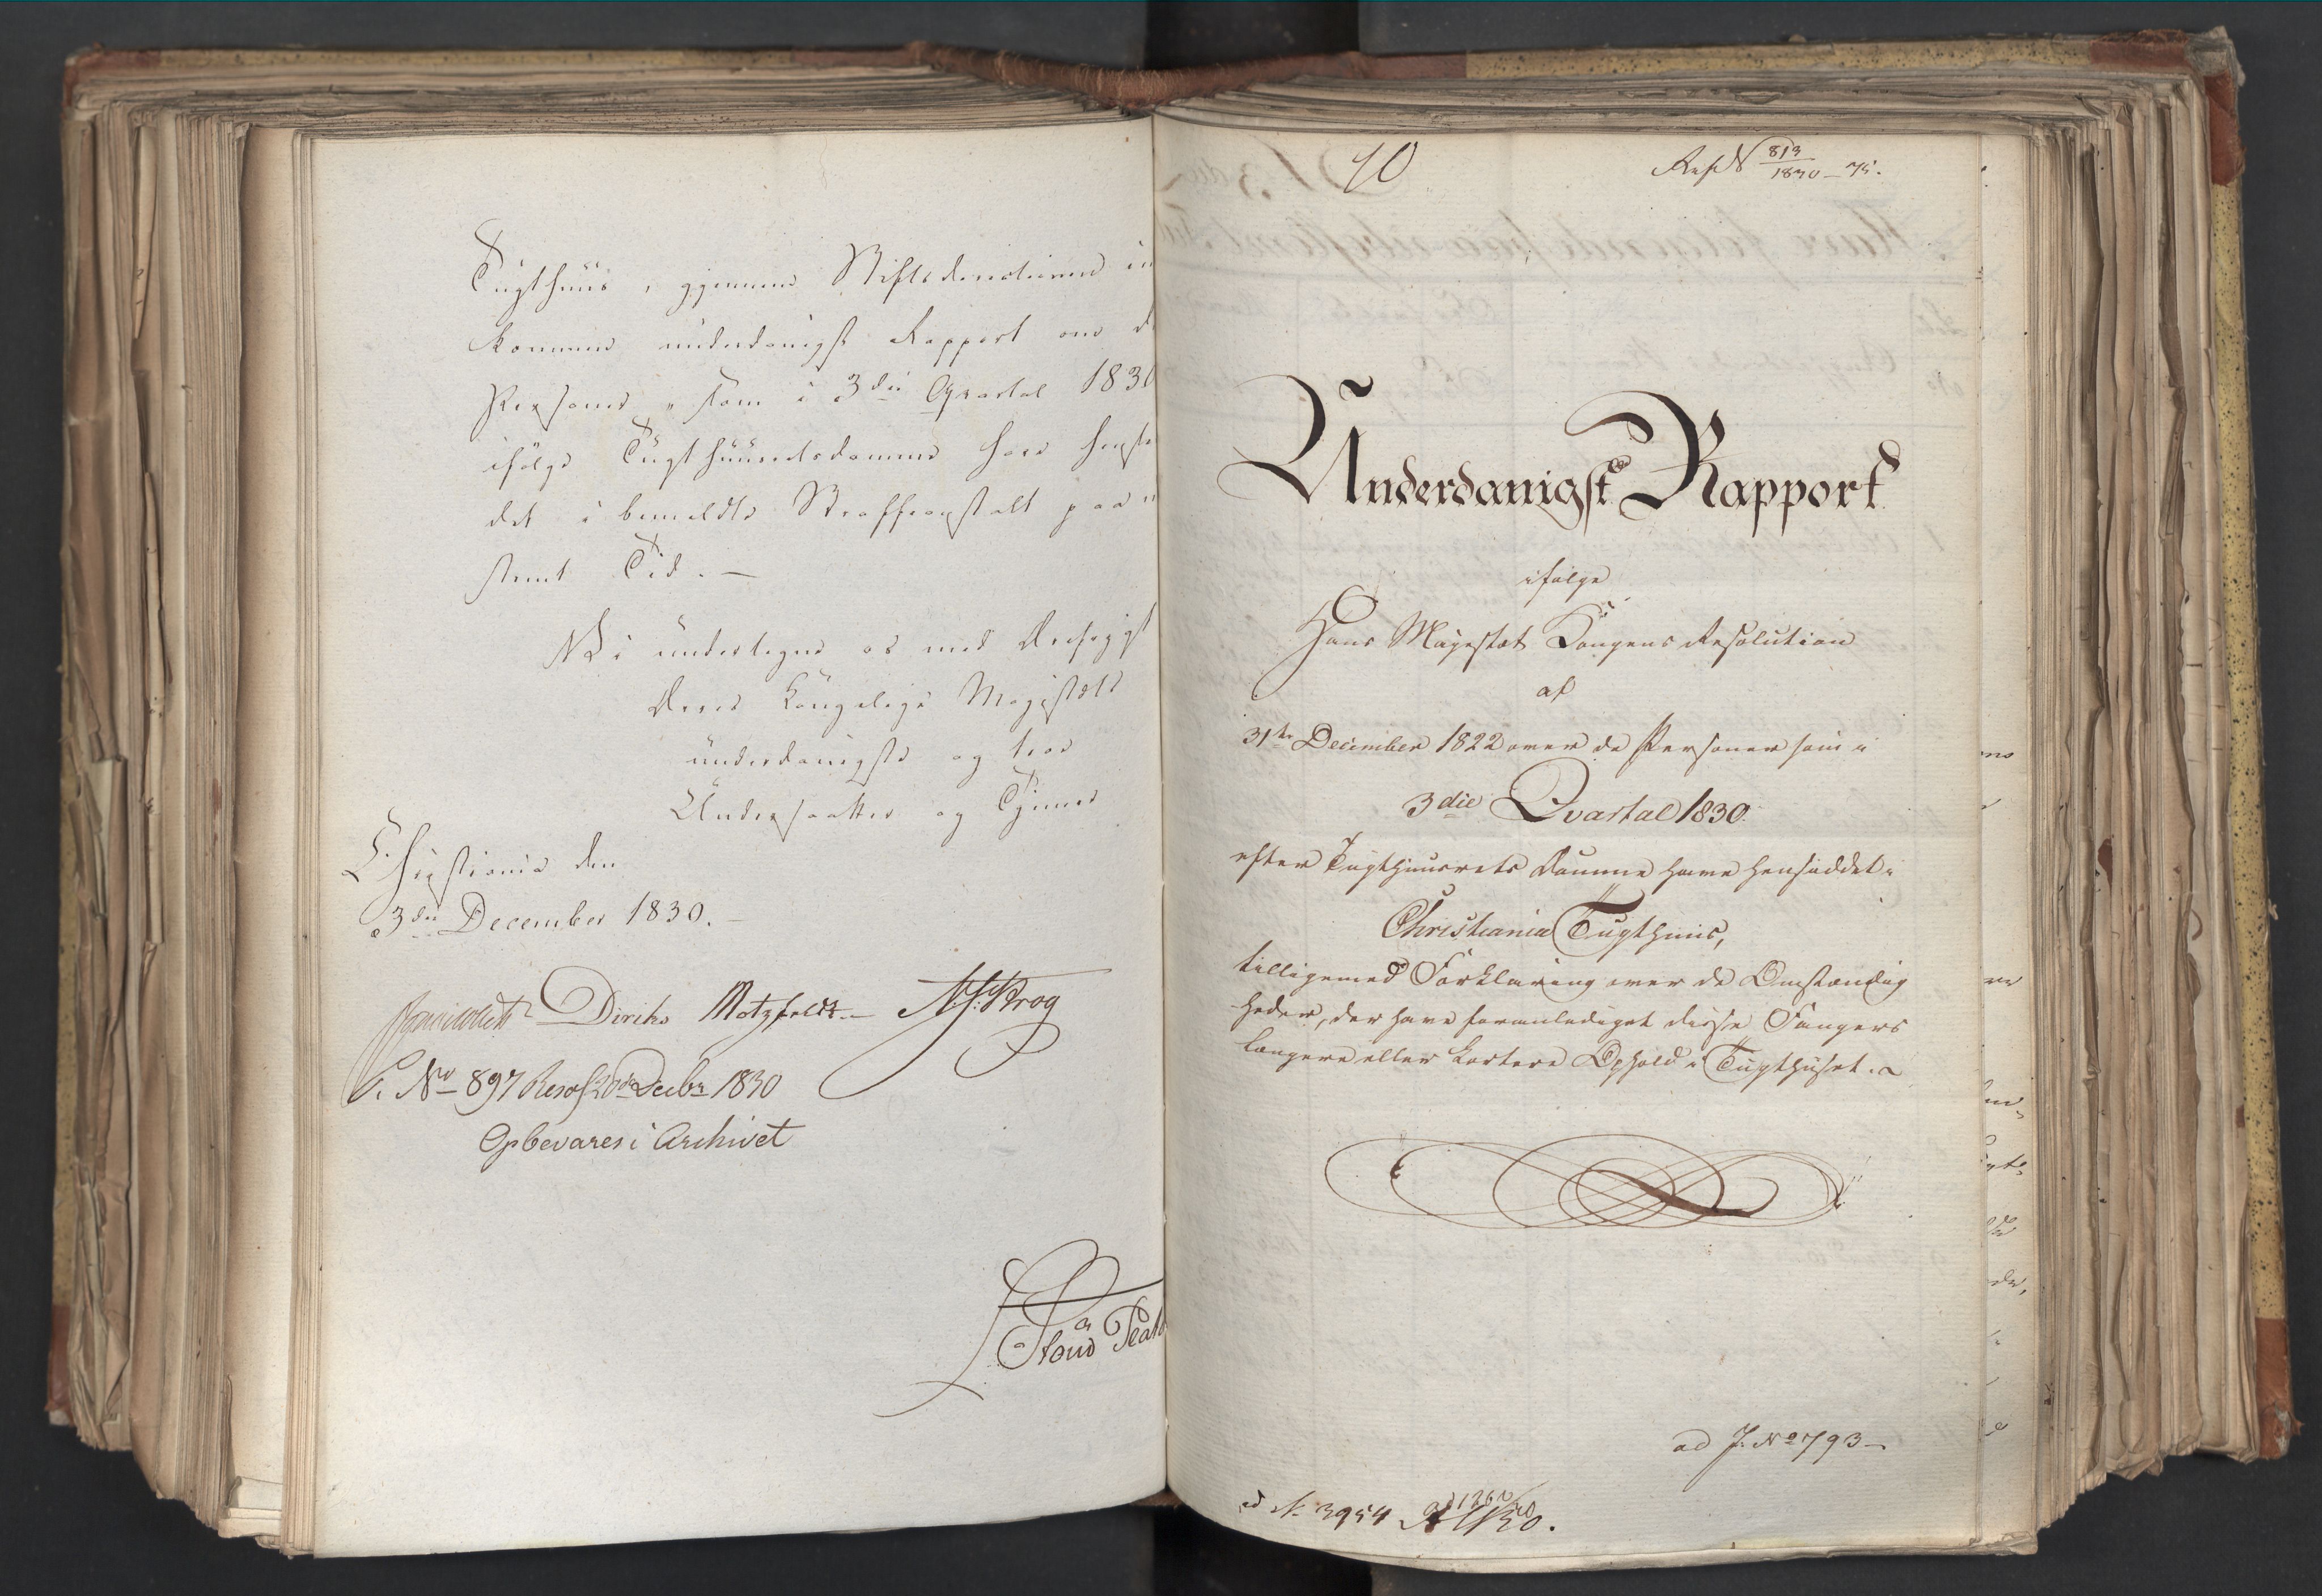 Tugthuus, gjennem Stiftsdirectionen in
kommen underdanigst Rapport om d
Personer, som i 3die Qvartal 1830
ifølge Tugthuusretsdomme have hensid
det i bemeldte Straffeanstalt paa u
stemt Tid. —
Vi undertegne os med Dybeste
Deres Kongelige Majestæts
underdanigste og troe
Undersaatter og Tjenere
Christiania den
3die December 1830. —
Diriks Motzfeldt. — Krog
P. No 897 Resol 20de Decbr 1830
Opbevares i Archivet
10
Ref No 813/1830 — 75.
Underdanigst Rapport
ifølge
Hans Majestæt Kongens Resolution
af
31te December 1822 over de Personer som i
3die Qvartal 1830.
efter Tugthuusrets Domme have hensiddet i
Christiania Tugthuus,
tilligemed Forklaring over de Omstændig
heder, der have foranlediget disse Fangers
længere eller kortere Ophold i Tugthuset.
ad J. No 793 —
ad No 3954